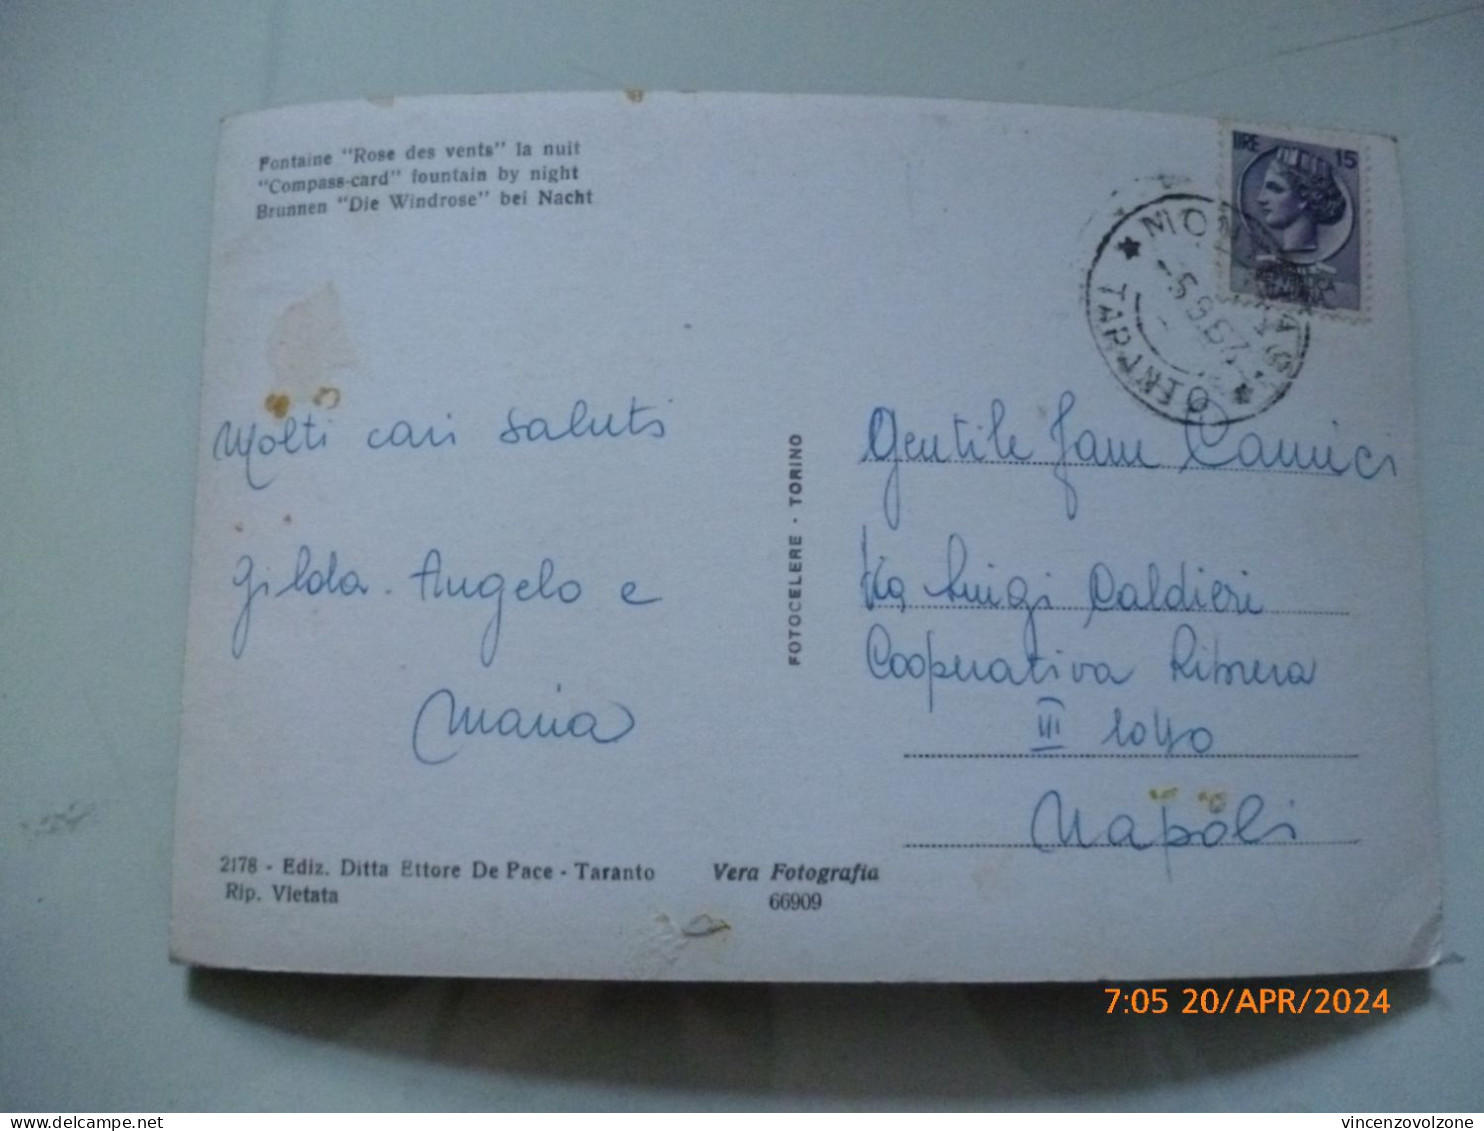 Fontaine "Rose des vents" la nuit
"Compass-card" fountain by night
Brunnen "Die Windrose" bei Nacht
LIRE 15
TARANTO
Molti cari saluti
Gilda. Angelo e
Maria
FOTOCELERE - TORINO
Gentile fam Camici
Via Luigi Caldieri
Cooperativa
III lotto
Napoli
2178 - Ediz. Ditta Ettore De Pace - Taranto
Rip. Vietata
Vera Fotografia
66909
7:05 20/APR/2024
vincenzovolzone